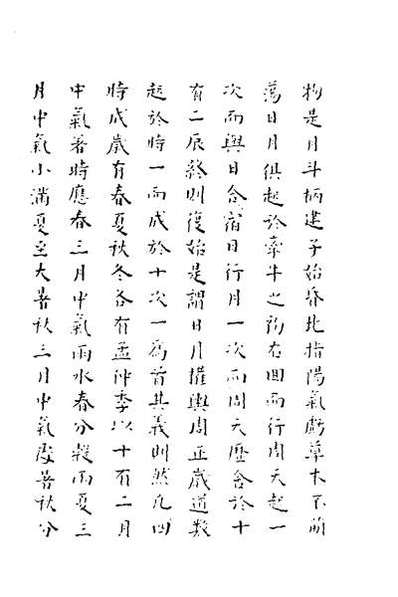 物是月斗柄建子始昏北指陽氣虧草木不萌
蕩日月俱起於牽牛之初右回而行周天起一
次而與日合宿日行月一次而周天歷舍於十
有二辰終則復始是謂日月權輿周正歲道數
起於時一而成於十次一爲首其義則然凡四
時成歲有春夏秋冬各有孟仲季以十有二月
中氣著時應春三月中氣雨水春分穀雨夏三
月中氣小滿夏至大暑秋三月中氣處暑秋分